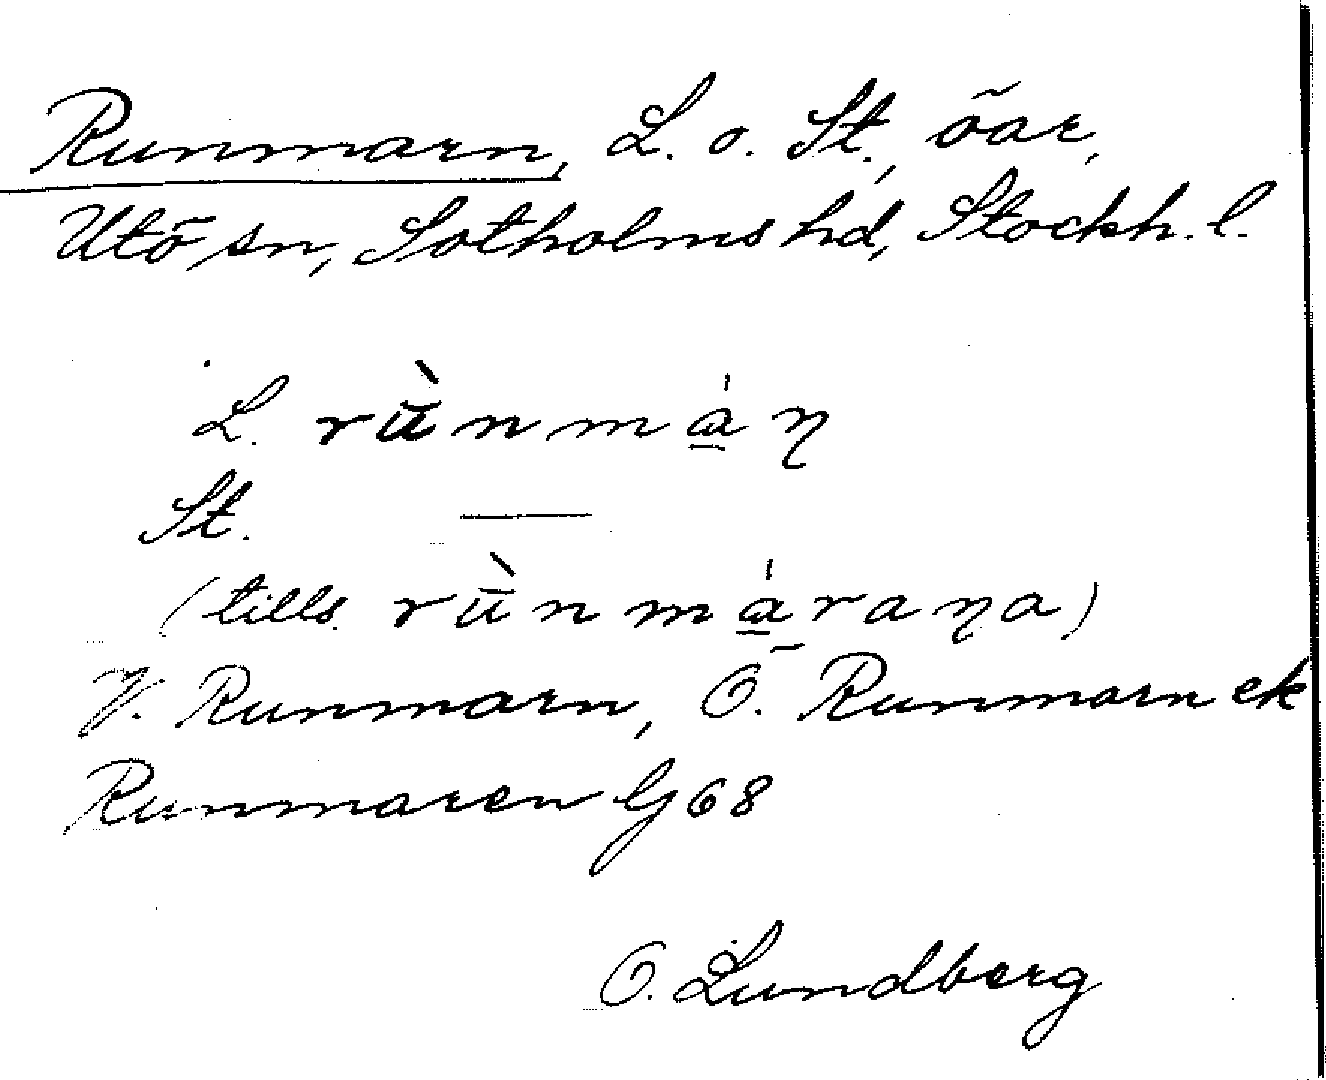 Runmarn, L. o. St., öar,
Utö sn, Sotholms hd, Stockh. l.
L. rū̀nma̲̍ŋ
St. —
(tills. rū̀nma̲̍raŋa)
V. Runmarn, Ö. Runmarn ek
Runmaren G 68
O. Lundberg